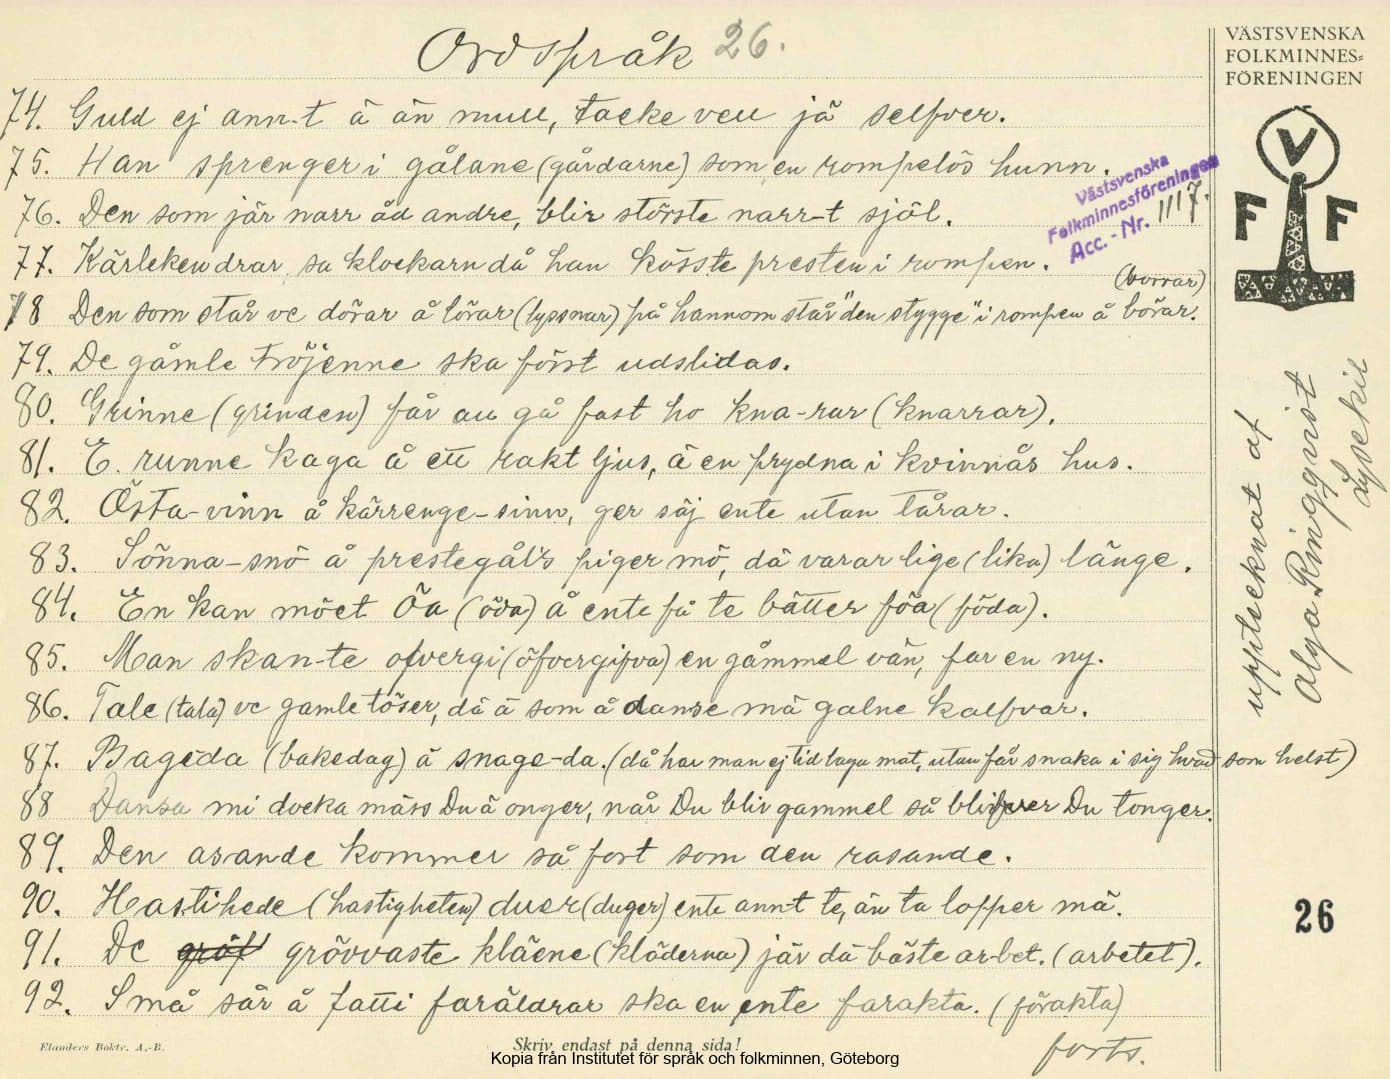 Ordspråk 26.
VÄSTSVENSKA
FOLKMINNES=
FÖRENINGEN
V
F F
74. Guld ej ann-t ä än mull, tacke vell jä selfver.
75. Han sprenger i gålane (gårdarne) som en rompelös hunn.
Västsvenska
Folkminnesföreningen
Acc. - Nr. 1117.
76. Den som jär narr åd andre, blir störste narr-t sjöl.
77. Kärleken drar, sa klockarn då han kösste presten i rompen.
(borrar)
78 Den som står ve dörar å lörar (lyssnar) på hannom står "den stygge" i rompen å börar.
79. De gåmle tröjenne ska först udslidas.
80. Grinne (grinden) får au gå fast ho kna-rar (knarrar).
81. E. runne kaga å ett rakt ljus, ä en prydna i kvinnås hus.
82. Östa-vinn å kärrenge-sinn, ger säj ente utan tårar.
83. Sönna-snö å prestegål's piger mö, dä varar lige (lika) länge.
84. En kan möet öa (öda) å ente få te bätter föa (föda).
85. Man skan-te ofvergi (öfvergifva) en gåmmel vän, far en ny.
86. Tale (tala) ve gamle töser, dä ä som å danse mä galne kalfvar.
87. Bageda (bakedag) ä snage-da. (då har man ej tid laga mat, utan får snaka i sig hvad som helst)
88 Dansa mi docka mäss Du ä onger, når Du blir gammel så blifver Du tonger.
89. Den asande kommer så fort som den rasande.
90. Hastihede (hastigheten) duer (duger) ente ann-t te, än ta lopper mä.
91. De gröf grövvaste kläene (kläderna) jär dä bäste ar-bet. (arbetet).
92. Små sår å fatti faräldrar ska en ente farakta. (förakta)
forts.
upptecknat af
Olga Ringqvist
Lysekil
26
Elanders Boktr. A.-B.
Skriv endast på denna sida!
Kopia från Institutet för språk och folkminnen, Göteborg